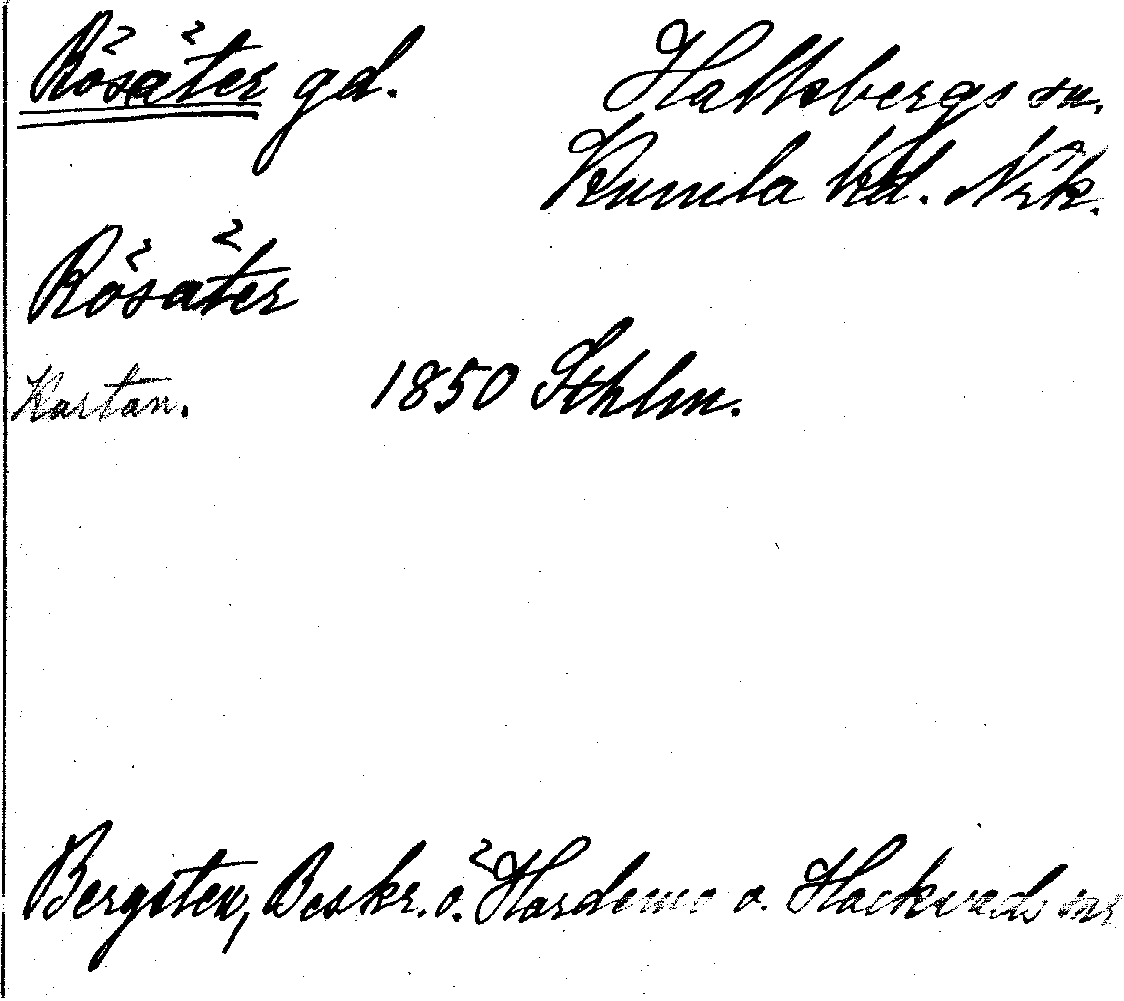 Rösäter gd. Hallsbergs sn.
Kumla hd. Nrk.
Rösäter
Kartan. 1850 Sthlm.
Bergsten, Beskr. ö. Hardemo o. Hackvads snr